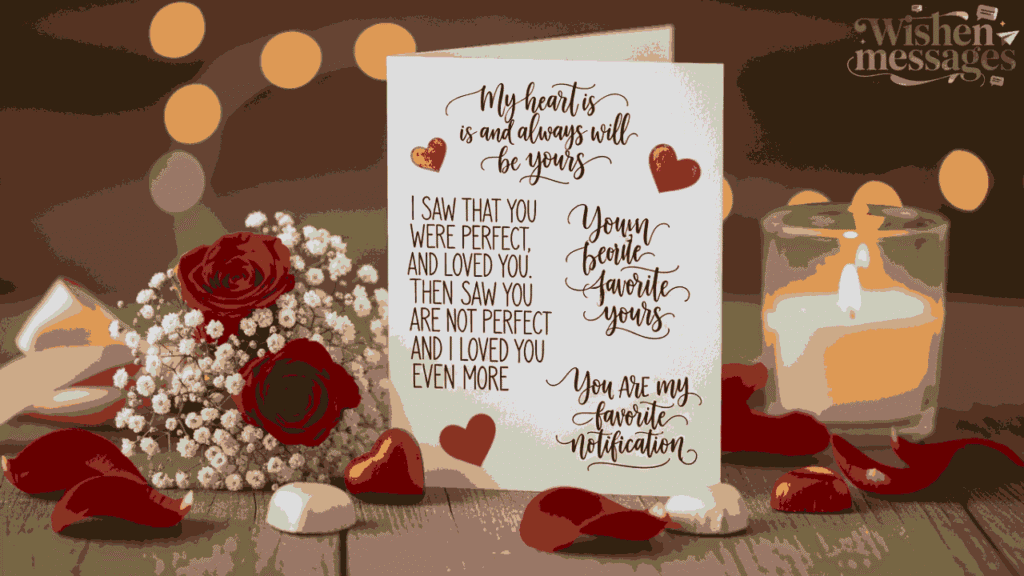 My heart is
is and always will
be yours
I SAW THAT YOU
WERE PERFECT,
AND LOVED YOU.
THEN SAW YOU
ARE NOT PERFECT
AND I LOVED YOU
EVEN MORE
favorite
yours
You ARE my
favorite
notification
Wishen
messages